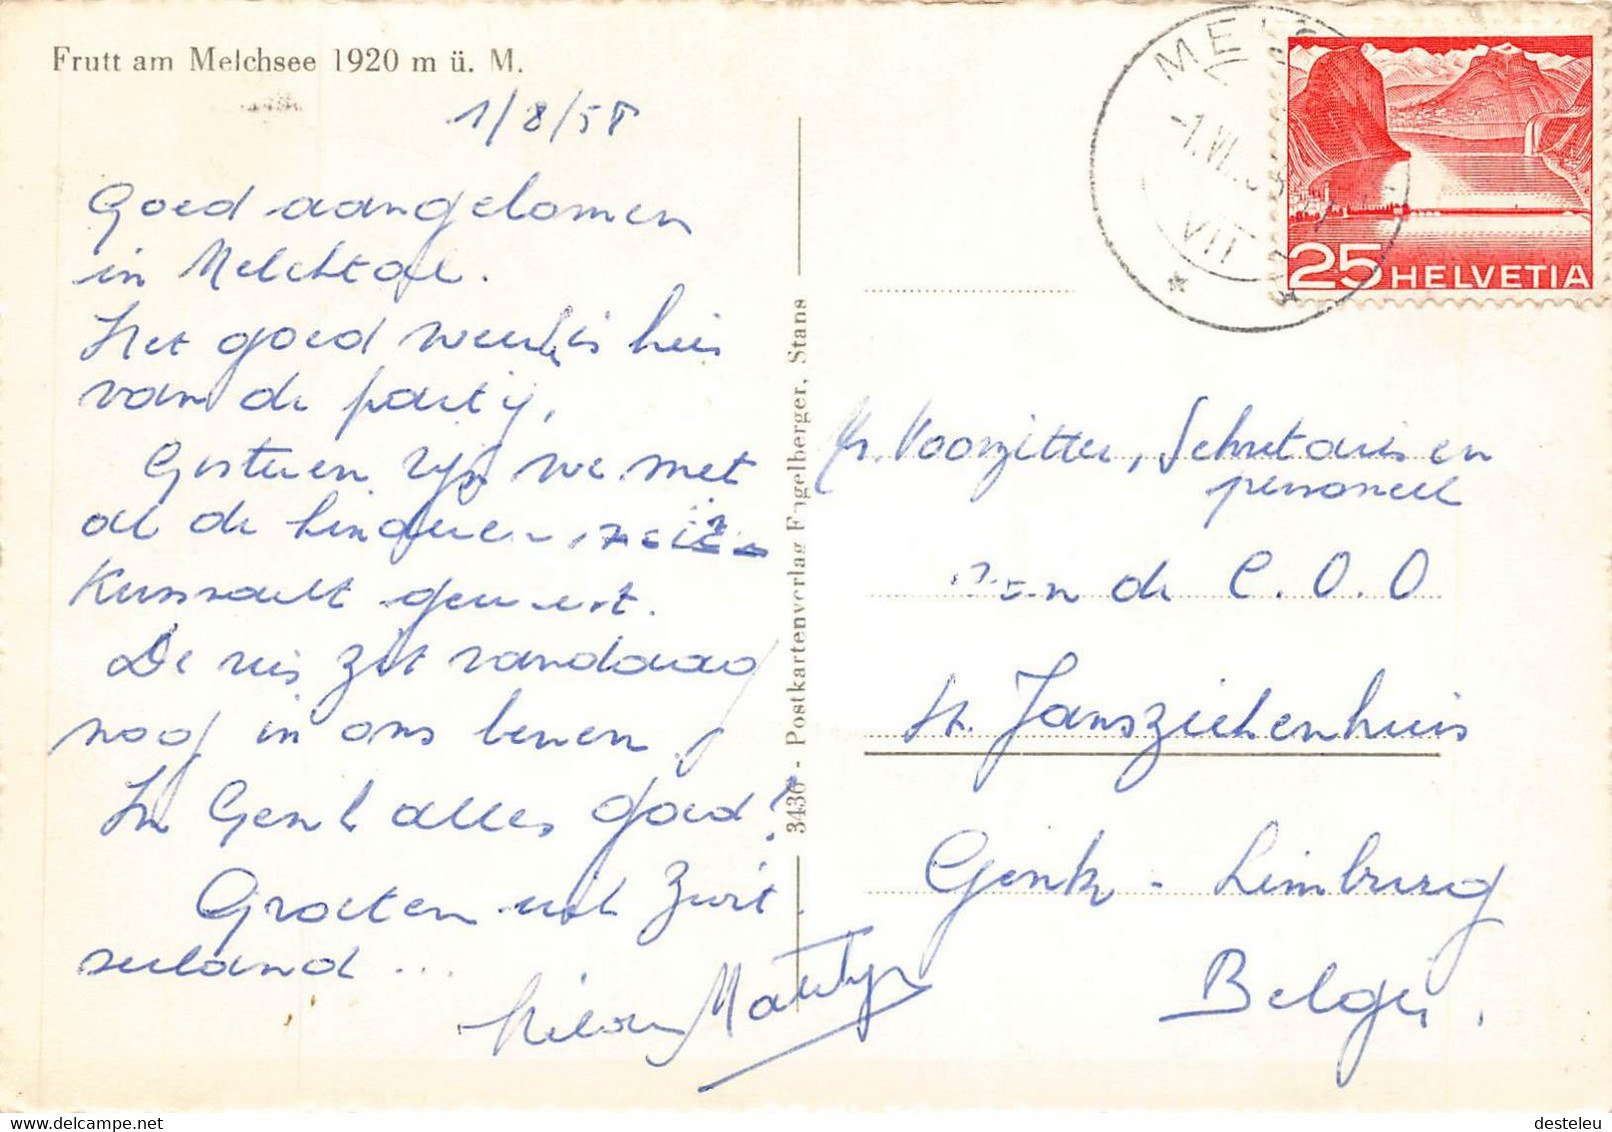 Frutt am Melchsee 1920 m ü. M.
1/8/58
Goed aangekomen
in Melchtal.
Het goed weer is hier
van de partij.
Gisteren zijn we met
al de kinderen naar
Kussnacht geweest.
De reis zit vandaag
nog in ons benen
In Genk alles goed?
Groeten uit Zwit
serland ...
Martijn
3436 - Postkartenverlag Engelberger, Stans
MELC
VIT
25 HELVETIA
Hr. Voorzitter, Sekretaris en
personeel
van de C.O.O
St. Jansziekenhuis
Genk - Limburg
België.
desteleu